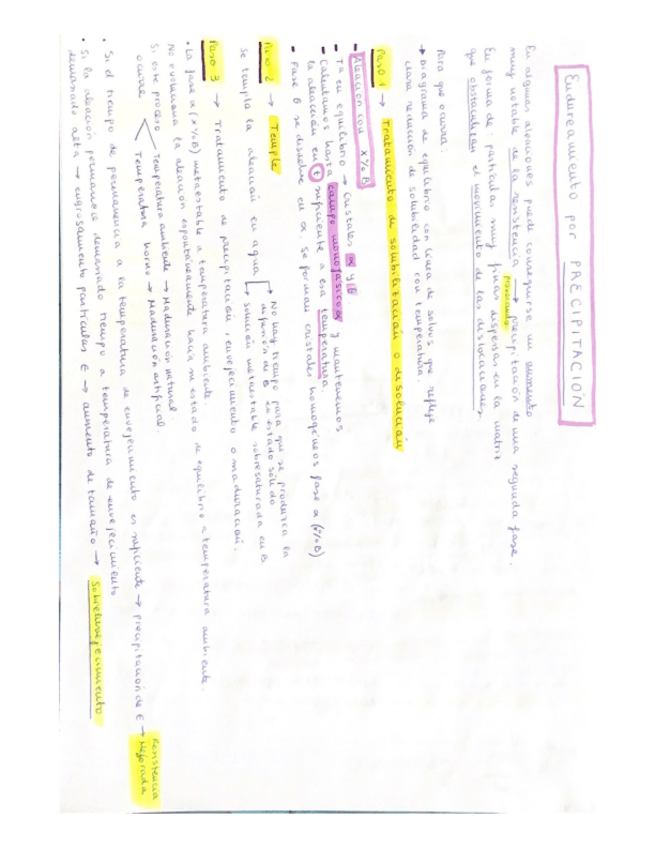 Endurecimiento por PRECIPITACIÓN
En algunas aleaciones puede conseguirse un aumento
muy notable de la resistencia → precipitación de una segunda fase.
provocando
En forma de partículas muy finas dispersas en la matriz
que obstaculizan el movimiento de las dislocaciones.
Para que ocurra:
→ Diagrama de equilibrio con línea de solvus que refleje
clara reducción de solubilidad con temperatura.
Paso 1 → Tratamiento de solubilización o disolución
- Aleación con x% B
- Ta en equilibrio → cristales α y θ
- Calentamos hasta campo monofásico α y mantenemos
la aleación en t suficiente a esa temperatura.
- Fase θ se disuelve en α. Se forman cristales homogéneos fase α (x% B)
Paso 2 → Temple
Se templa la aleación en agua
No hay tiempo para que se produzca la
difusión de B en estado sólido
solución metaestable sobresaturada en B
Paso 3 → Tratamiento de precipitación, envejecimiento o maduración.
• La fase α (x% B) metaestable a temperatura ambiente.
No evoluciona la aleación espontáneamente hacia su estado de equilibrio a temperatura ambiente.
Si este proceso
ocurre
Temperatura ambiente → Maduración natural.
Temperatura horno → Maduración artificial.
• Si el tiempo de permanencia a la temperatura de envejecimiento es suficiente → precipitación de ε → Resistencia
Mejorada
• Si la aleación permanece demasiado tiempo a temperatura de envejecimiento
demasiado alta → engrosamiento partículas ε → aumento de tamaño → Sobreenvejecimiento